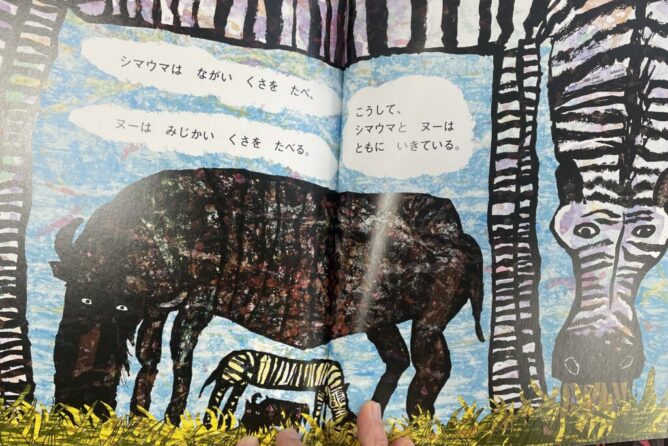 シマウマは ながい くさを たべ、
ヌーは みじかい くさを たべる。
こうして、
シマウマと ヌーは
ともに いきている。